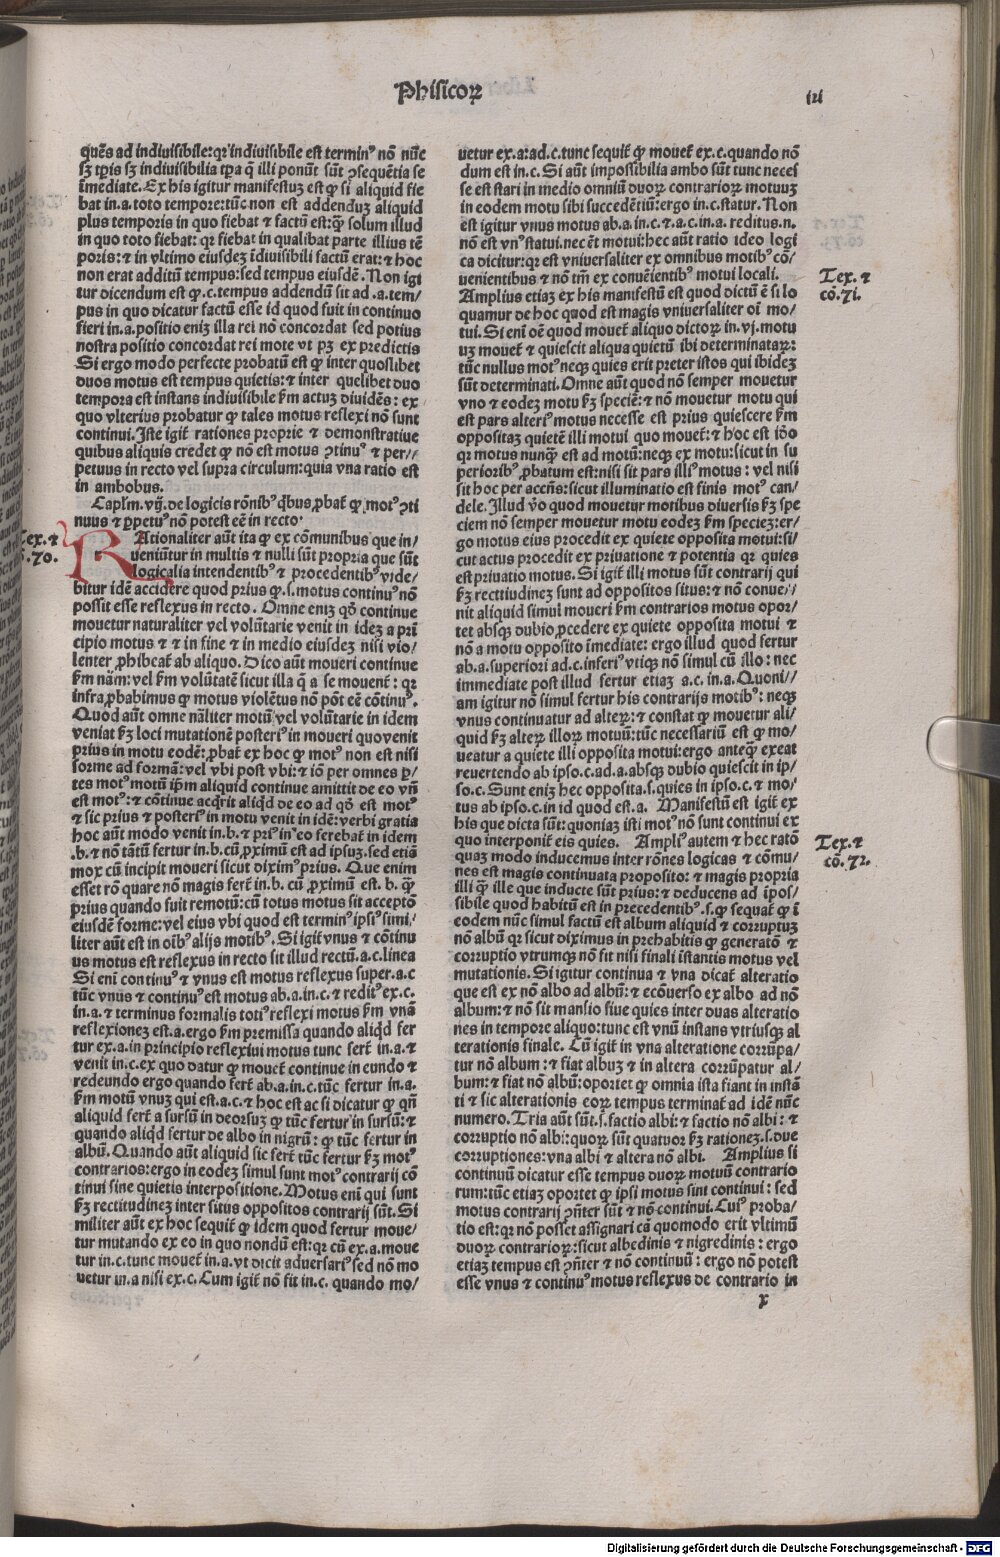 Phisicoꝝ
iii
quēs ad indiuisibile: qꝛ indiuisibile est terminꝰ nō nūc
sꝫ tꝑis sꝫ indiuisibilia tꝑa q̄ illi ponūt sūt ↄsequētia se
īmediate. Ex his igitur manifestuꝫ est ꝙ si aliquid fie
bat in .a. toto tempore: tūc non est addenduꝫ aliquid
plus temporis in quo fiebat ⁊ factū est: q̄ꝫ solum illud
in quo toto fiebat: qꝛ fiebat in qualibet parte illius tē
poris: ⁊ in vltimo eiusdeꝫ īdiuisibili factū erat: ⁊ hoc
non erat additū tempus: sed tempus eiusdē. Non igi
tur dicendum est ꝙ .c. tempus addendū sit ad .a. tem/
pus in quo dicatur factū esse id quod fuit in continuo
fieri in .a. positio eniꝫ illa rei nō concordat sed potius
nostra positio concordat rei mote vt pꝫ ex predictis
Si ergo modo perfecte probatū est ꝙ inter quoslibet
duos motus est tempus quietis: ⁊ inter quelibet duo
tempora est instans indiuisibile ẜm actuꝫ diuidēs: ex
quo vlterius probatur ꝙ tales motus reflexi nō sunt
continui. Iste igit̄ rationes proprie ⁊ demonstratiue
quibus aliquis credet ꝙ nō est motus ↄtinuꝰ ⁊ per//
petuus in recto vel supra circulum: quia vna ratio est
in ambobus.
Caplm̄. vij. de logicis rōnibꝰ q̇bus ꝓbat̄ ꝙ motꝰ ↄti
nuus ⁊ ꝑpetuꝰ nō potest eē in recto.
Tex. ⁊
. 70.
RAtionaliter aūt ita ꝙ ex cōmunibus que in/
ueniūtur in multis ⁊ nulli sūt propria que sūt
logicalia intendentibꝰ ⁊ procedentibꝰ vide/
bitur idē accidere quod prius ꝙ .s. motus continuꝰ nō
possit esse reflexus in recto. Omne eniꝫ qd̄ continue
mouetur naturaliter vel volūtarie venit in ideꝫ a pri
cipio motus ⁊ ⁊ in fine ⁊ in medio eiusdeꝫ nisi vio/
lenter ꝓhibeat̄ ab aliquo. Dico aūt moueri continue
ẜm nām: vel ẜm volūtatē sicut illa q̄ a se mouent̄: qꝛ
infra ꝓbabimus ꝙ motus violētus nō pōt eē cōtinuꝰ.
Quod aūt omne nāliter motū vel volūtarie in idem
veniat ẜꝫ loci mutationē posteriꝰ in moueri quo venit
prius in motu eodē: ꝓbat̄ ex hoc ꝙ motꝰ non est nisi
forme ad formā: vel vbi post vbi: ⁊ iō per omnes ꝑ/
tes motꝰ motū ip̄m aliquid continue amittit de eo vn̄
est motꝰ: ⁊ cōtinue acq̇rit aliq̇d de eo ad qd̄ est motꝰ
⁊ sic prius ⁊ posteriꝰ in motu venit in idē: verbi gratia
hoc aūt modo venit in .b. ⁊ priꝰ in eo ferebat̄ in idem
.b. ⁊ nō tātū fertur in .b. cū ꝓximū est ad ipsuꝫ. sed etiā
mox cū incipit moueri sicut diximꝰ prius. Que enim
esset rō quare nō magis fert̄ in .b. cū ꝓximū est .b. q̄ꝫ
prius quando fuit remotū: cū totus motus sit acceptō
eiusdē forme: vel eius vbi quod est terminꝰ ipsiꝰ simi/
liter aūt est in oībꝰ alijs motibꝰ. Si igit̄ vnus ⁊ cōtinu
us motus est reflexus in recto sit illud rectū .a.c. linea
Si enī continuꝰ ⁊ vnus est motus reflexus super .a.c
tūc vnus ⁊ continuꝰ est motus ab .a. in .c. ⁊ reditꝰ ex .c.
in .a. ⁊ terminus formalis totiꝰ reflexi motus ẜm vnā
reflexioneꝫ est .a. ergo ẜm premissa quando aliq̇d fer
tur ex .a. in principio reflexiui motus tunc fert̄ in .a. ⁊
venit in .c. ex quo datur ꝙ mouet̄ continue in eundo ⁊
redeundo ergo quando fert̄ ab .a. in .c. tūc fertur in .a.
ẜm motū vnuꝫ qui est .a.c. ⁊ hoc est ac si dicatur ꝙ qn̄
aliquid fert̄ a sursū in deorsuꝫ ꝙ tūc fertur in sursū: ⁊
quando aliq̇d fertur de albo in nigrū: ꝙ tūc fertur in
albū. Quando aūt aliquid sic fert̄ tūc fertur ẜꝫ motꝰ
contrarios: ergo in eodeꝫ simul sunt motꝰ contrarij cō
tinui sine quietis interpositione. Motus enī qui sunt
ẜꝫ rectitudineꝫ inter situs oppositos contrarij sūt. Si
militer aūt ex hoc sequit̄ ꝙ idem quod fertur moue/
tur mutando ex eo in quo nondū est: qꝛ cū ex .a. moue
tur in .c. tunc mouet̄ in .a. vt dicit aduersariꝰ sed nō mo
uetur in .a nisi ex .c. Cum igit̄ nō sit in .c. quando mo/
uetur ex .a: ad .c. tunc sequit̄ ꝙ mouet̄ ex .c. quando nō
dum est in .c. Si aūt impossibilia ambo sūt tunc neces
se est stari in medio omniū duoꝝ contrarioꝝ motuuꝫ
in eodem motu sibi succedētiū: ergo in .c. statur. Non
est igitur vnus motus ab .a. in .c. ⁊ a .c. in .a. reditus. n.
nō est vnꝰ statui. nec ēt motui: hec aūt ratio ideo logi
ca dicitur: qꝛ est vniuersaliter ex omnibus motibꝰ cō/
uenientibus ⁊ nō tm̄ ex conuēientibꝰ motui locali.
Tex. ⁊
cō. 71.
Amplius etiaꝫ ex his manifestū est quod dictū ē si lo
quamur de hoc quod est magis vniuersaliter oī mo/
tui. Si enī oē quod mouet̄ aliquo dictoꝝ in .vj. motu
uꝫ mouet̄ ⁊ quiescit aliqua quietū ibi determinataꝝ:
tūc nullus motꝰ neqꝫ quies erit preter istos qui ibideꝫ
sūt determinati. Omne aūt quod nō semper mouetur
vno ⁊ eodeꝫ motu ẜꝫ speciē: ⁊ nō mouetur motu qui
est pars alteriꝰ motus necesse est prius quiescere ẜm
oppositaꝫ quietē illi motui quo mouet̄: ⁊ hoc est iō̄
qꝛ motus nunqꝫ est ad motū: neqꝫ ex motu: sicut in su
perioribꝰ ꝓbatum est: nisi sit pars illiꝰ motus: vel nisi
sit hoc per accn̄s: sicut illuminatio est finis motꝰ can/
dele. Illud v̄o quod mouetur motibus diuersis ẜꝫ spe
ciem nō semper mouetur motu eodeꝫ ẜm specieꝫ: er/
go motus eius procedit ex quiete opposita motui: si/
cut actus procedit ex priuatione ⁊ potentia qꝛ quies
est priuatio motus. Si igit̄ illi motus sunt contrarij qui
ẜꝫ recttiudineꝫ sunt ad oppositos situs: ⁊ nō conue/
nit aliquid simul moueri ẜm contrarios motus opor/
tet absqꝫ dubio ꝓcedere ex quiete opposita motui ⁊
nō a motu opposito īmediate: ergo illud quod fertur
ab .a. superiori ad .c. inferiꝰ vtiqꝫ nō simul cū illo: nec
immediate post illud fertur etiaꝫ a .c. in .a. Quoni//
am igitur nō simul fertur his contrarijs motibꝰ: neqꝫ
vnus continuatur ad alteꝝ: ⁊ constat ꝙ mouetur ali/
quid ẜꝫ alteꝝ illoꝝ motuū: tūc necessariū est ꝙ mo/
ueatur a quiete illi opposita motui: ergo anteqꝫ exeat
reuertendo ab ipso .c. ad .a. absqꝫ dubio quiescit in ip/
so .c. Sunt eniꝫ hec opposita .s. quies in ipso .c. ⁊ mo/
tus ab ipso .c. in id quod est .a. Manifestū est igit̄ ex
his que dicta sūt: quoniaꝫ isti motꝰ nō sunt continui ex
Tex. ⁊
cō. 72.
quo interponit̄ eis quies. Ampliꝰ autem ⁊ hec ratō
quaꝫ modo inducemus inter rōnes logicas ⁊ cōmu/
nes est magis continuata proposito: ⁊ magis propria
illi q̄ꝫ ille que inducte sūt prius: ⁊ deducens ad īpos/
sibile quod habitū est in precedentibꝰ .s. ꝙ sequat̄ ꝙ ī
eodem nūc simul factū est album aliquid ⁊ corruptuꝫ
nō albū qꝛ sicut diximus in prehabitis ꝙ generatō ⁊
corruptio vtrumqꝫ nō sit nisi finali īstantis motus vel
mutationis. Si igitur continua ⁊ vna dicat̄ alteratio
que est ex nō albo ad albū: ⁊ ecōuerso ex albo ad nō
album: ⁊ nō sit mansio siue quies inter duas alteratio
nes in tempore aliquo: tunc est vnū instans vtriusqꝫ al
terationis finale. Cū igit̄ in vna alteratione corrūpa/
tur nō album: ⁊ fiat albuꝫ ⁊ in altera corrūpatur al/
bum: ⁊ fiat nō albū: oportet ꝙ omnia ista fiant in instā
ti ⁊ sic alterationis eoꝝ tempus terminat̄ ad idē nūc
numero. Tria aūt sūt .s. factio albi: ⁊ factio nō albi: ⁊
corruptio nō albi: quoꝝ sūt quatuor ẜꝫ rationeꝫ .s. due
corruptiones: vna albi ⁊ altera nō albi. Amplius si
continuū dicatur esse tempus duoꝝ motuū contrario
rum: tūc etiaꝫ oportet ꝙ ipsi motus sint continui: sed
motus contrarij ↄn̄ter sūt ⁊ nō continui. Cuiꝰ proba/
tio est: qꝛ nō posset assignari cā quomodo erit vltimū
duoꝝ contrarioꝝ: sicut albedinis ⁊ nigredinis: ergo
etiaꝫ tempus est ↄn̄ter ⁊ nō continuū: ergo nō potest
esse vnus ⁊ continuꝰ motus reflexus de contrario in
x
Digitalisierung gefördert durch die Deutsche Forschungsgemeinschaft - DFG